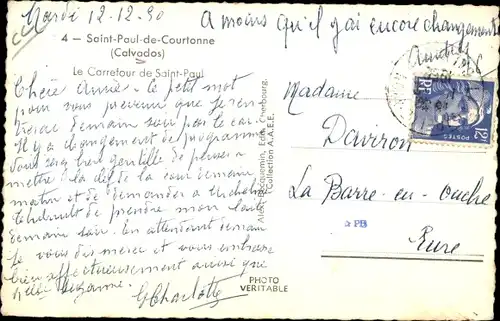 Mardi 12-12-50
A moins qu'il y ai encore changement
4 — Saint-Paul-de-Courtonne
(Calvados)
Le Carrefour de Saint-Paul
Chère Annie - le petit mot
pour vous prévenir que je
demain soir par le car.
Il y a changement de programme
Vous serez bien gentille de penser à
mettre la clef de la cour demain
matin et de demander à
de prendre mon
demain soir. En attendant demain
je vous dis merci et vous embrasse
bien affectueusement ainsi que
Suzanne.
G Charlotte
Alex. Jacquemin, Edit. Cherbourg.
(Collection A.A.E.F.
PHOTO
VERITABLE
RF
POSTES
12F
Madame
Davron
La Barre-en-Ouche
Eure